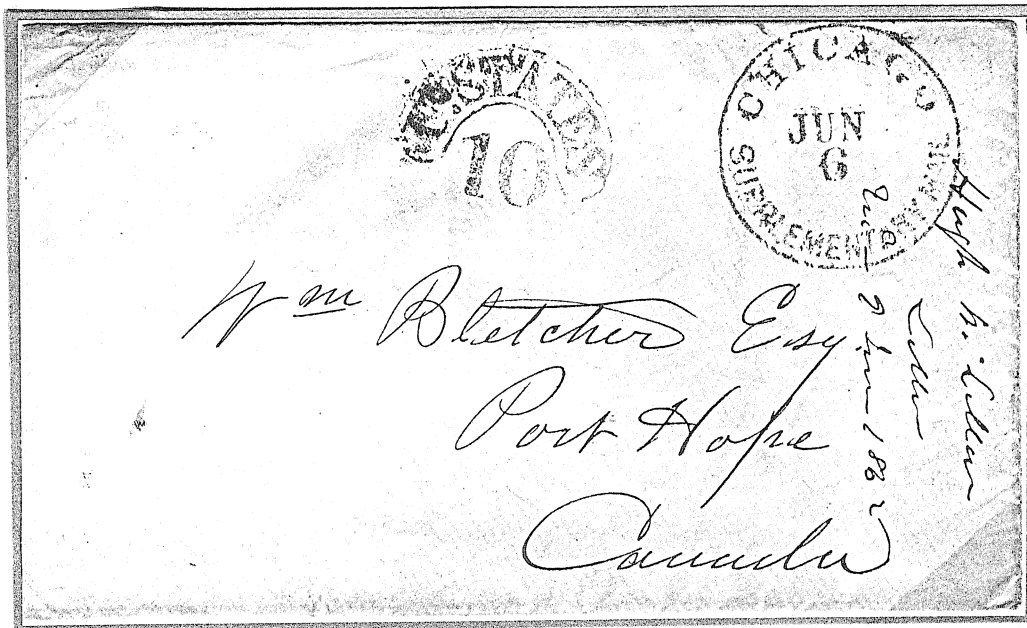 U.STATES
10
CHICAGO
JUN
6
SUPPLEMENTARY MAIL
Wm Bletcher Esq
Port Hope
Canada
Hugh
Letter
June 1862